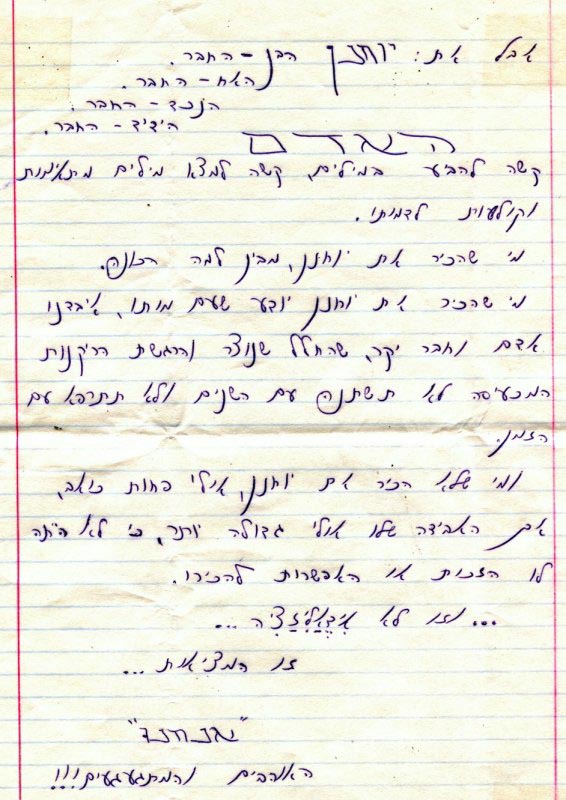 אבל את: יוחנן הבן - החבר.
האח - החבר.
הנכד - החבר.
הידיד - החבר.
האדם
קשה להביע במילים, קשה למצא מילים מתאימות
וקולעות לדמותו.
מי שהכיר את יוחנן, מבין למה הכונה.
מי שהכיר את יוחנן יודע שעם מותו, איבדנו
אדם וחבר יקר, שהחלל שנוצר והרגשת הריקנות
המכעיסה לא תשתנה עם השנים ולא תתרפא עם
הזמן.
ומי שלא הכיר את יוחנן, אולי פחות כואב,
אך האבידה שלו אולי גדולה יותר, כי לא היתה
לו הזכות או האפשרות להכירו.
... וזו לא אִידֵאַלִיזַצִיָה ...
זו המציאות ...
"אנחנו"
האוהבים והמתגעגעים!!!